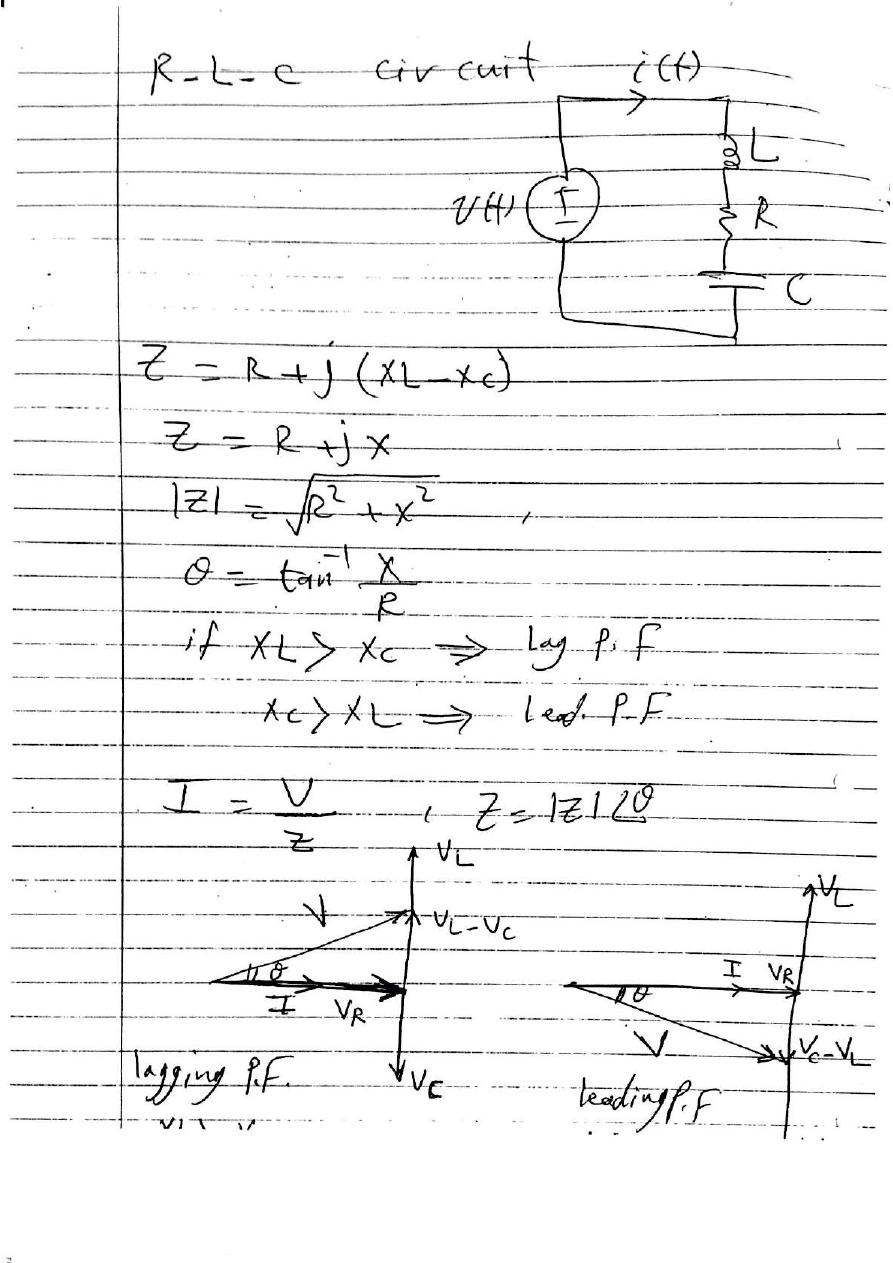 R-L-C circuit i(t)
L
V(t)
R
C
Z = R + j (XL - Xc)
Z = R + j x
|Z| = √R² + x²
θ = tan⁻¹ X/R
if XL > Xc ⇒ Lag P.F
Xc > XL ⇒ lead. P.F
I = V/Z , Z = |Z| ∠θ
VL
VL
V
VL-Vc
θ
I VR
I VR
θ
V
Vc-VL
lagging P.F.
Vc
leading P.F